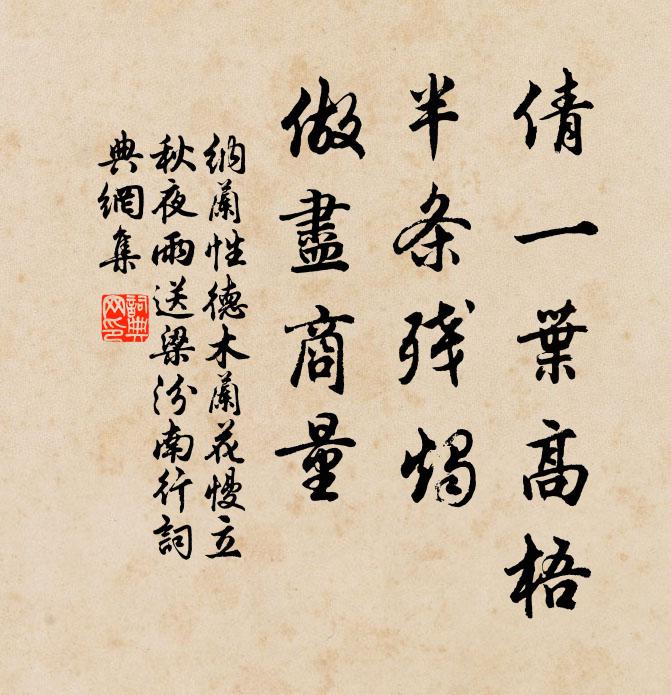 倩一葉高梧
半条残燭
做盡商量
納蘭性德木蘭花慢立
秋夜雨送梁汾南行詞
典網集
詞典
网印